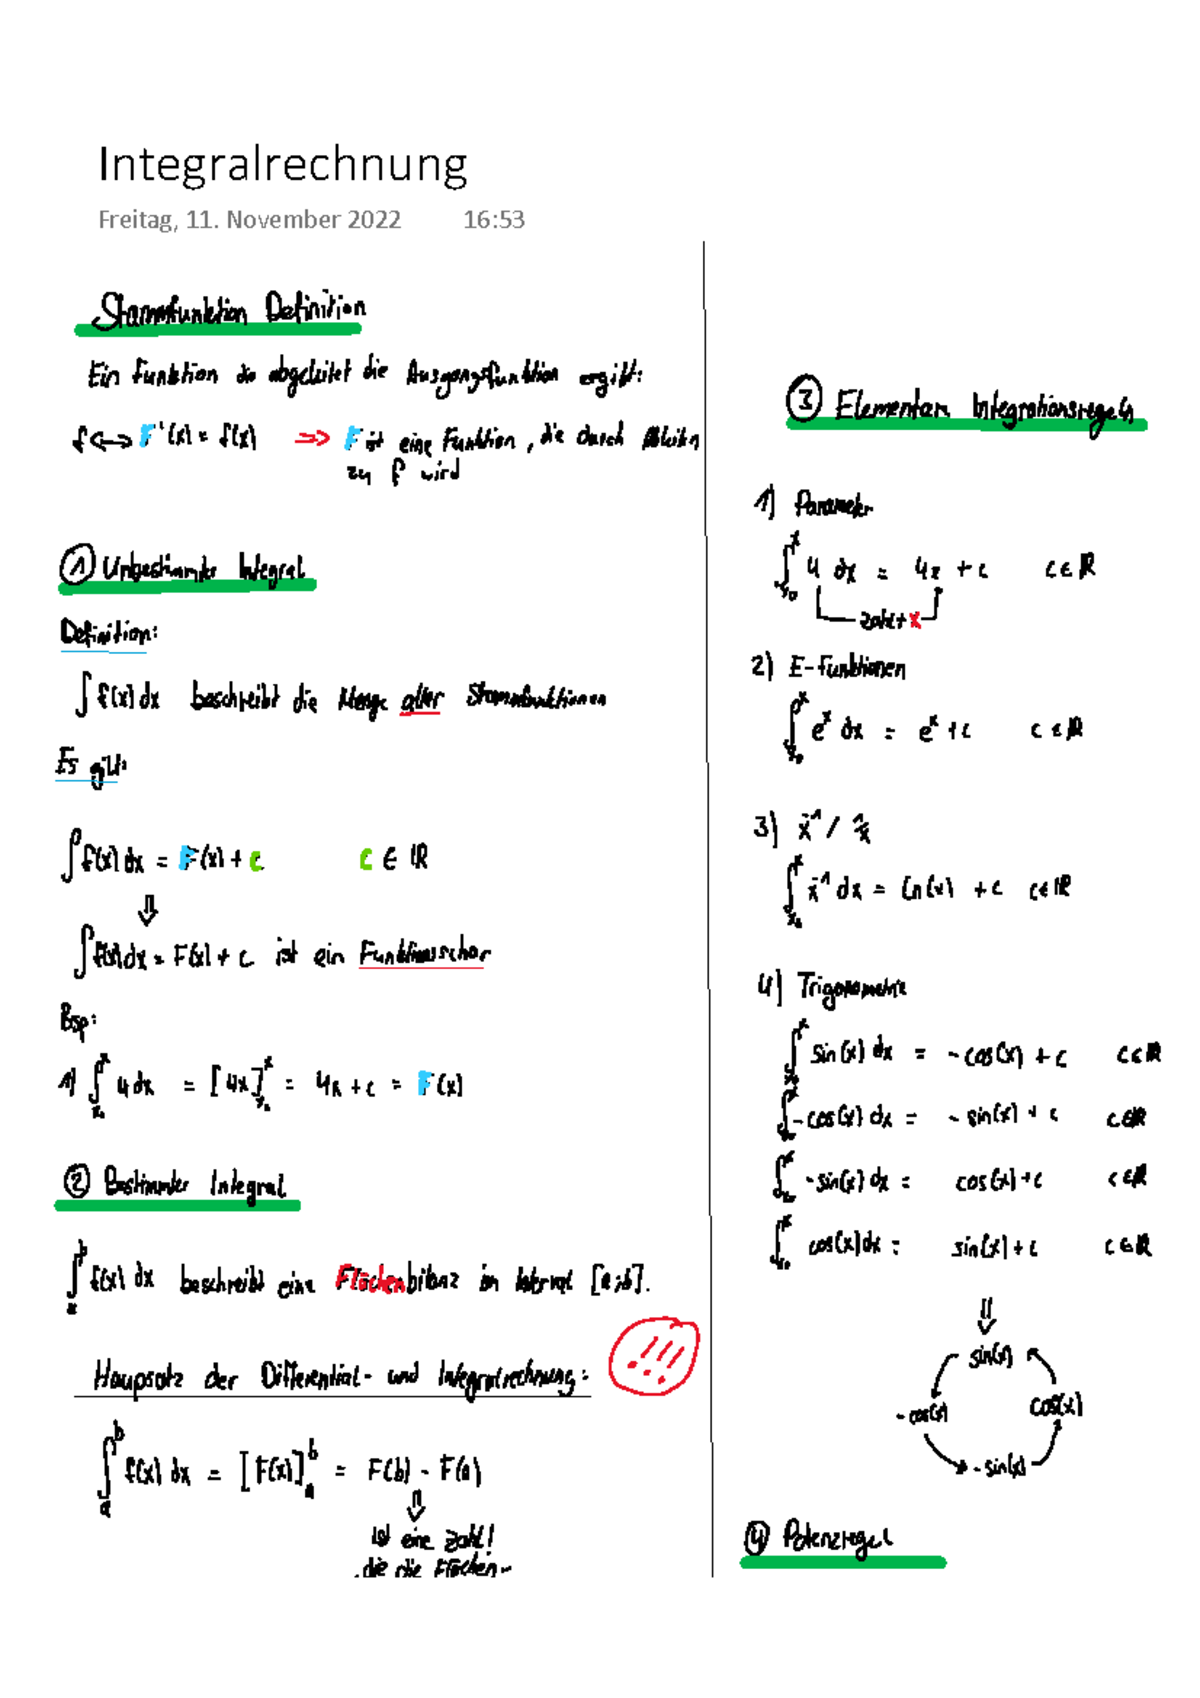 Integralrechnung
Freitag, 11. November 2022 16:53
Stammfunktion Definition
Ein Funktion die abgeleitet die Ausgangsfunktion ergibt:
f <=> F'(x) = f(x) => F ist eine Funktion, die durch Ableiten
zu f wird
① Unbestimmter Integral
Definition:
∫ f(x) dx beschreibt die Menge aller Stammfunktionen
Es gilt:
∫ f(x) dx = F(x) + c c ∈ ℝ
⇓
∫ f(x) dx = F(x) + c ist ein Funktionsschar
Bsp:
1) ∫ₓ₀ˣ 4 dx = [4x]ₓ₀ˣ = 4x + c = F(x)
② Bestimmter Integral
∫ₐᵇ f(x) dx beschreibt eine Flächenbilanz im Interval [a;b].
Haupsatz der Differential- und Integralrechnung: !!!
∫ₐᵇ f(x) dx = [F(x)]ₐᵇ = F(b) - F(a)
⇓
ist eine Zahl!
die die Flächen-
③ Elementare Integrationsregeln
1) Parameter
∫ₓ₀ˣ 4 dx = 4x + c c ∈ ℝ
Zahl + x
2) E-Funktionen
∫ₓ₀ˣ eˣ dx = eˣ + c c ∈ ℝ
3) x⁻¹ / 1/x
∫ₓ₀ˣ x⁻¹ dx = ln(x) + c c ∈ ℝ
4) Trigonometrie
∫ₓ₀ˣ sin(x) dx = -cos(x) + c c ∈ ℝ
∫ₓ₀ˣ -cos(x) dx = -sin(x) + c c ∈ ℝ
∫ₓ₀ˣ -sin(x) dx = cos(x) + c c ∈ ℝ
∫ₓ₀ˣ cos(x) dx = sin(x) + c c ∈ ℝ
⇓
sin(x)
-cos(x) cos(x)
-sin(x)
④ Potenzregel